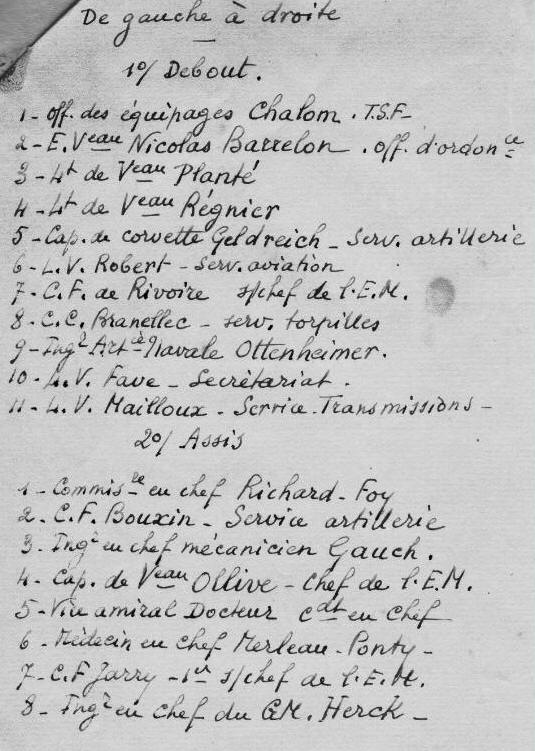 De gauche à droite
1º/ Debout.
1 - Off. des équipages Chalom. T.S.F -
2 - E. Veau Nicolas Barrelon. off. d'ordonce
3 - Lt de Veau Planté
4 - Lt de Veau Régnier
5 - Cap. de corvette Geldreich - Serv. artillerie
6 - L.V. Robert - Serv. aviation
7 - C.F. de Rivoire s/chef de l'E.M.
8 - C.C. Branellec - serv. torpilles
9 - Ingr Artie Navale Ottenheimer.
10 - L.V. Fave - Secrétariat.
11 - L.V. Mailloux - Service Transmissions -
2º/ Assis
1 - Commisre en chef Richard - Foy
2. C.F. Bouxin - Service artillerie
3. Ingr en chef mécanicien Gauch.
4 - Cap. de Veau Ollive - Chef de l'E.M.
5 - Vice amiral Docteur cdt en Chef
6 - Médecin en chef Merleau-Ponty -
7 - C.F Jarry - 1er s/chef de l'E.M.
8 - Ingr en chef du G.M. Herck -